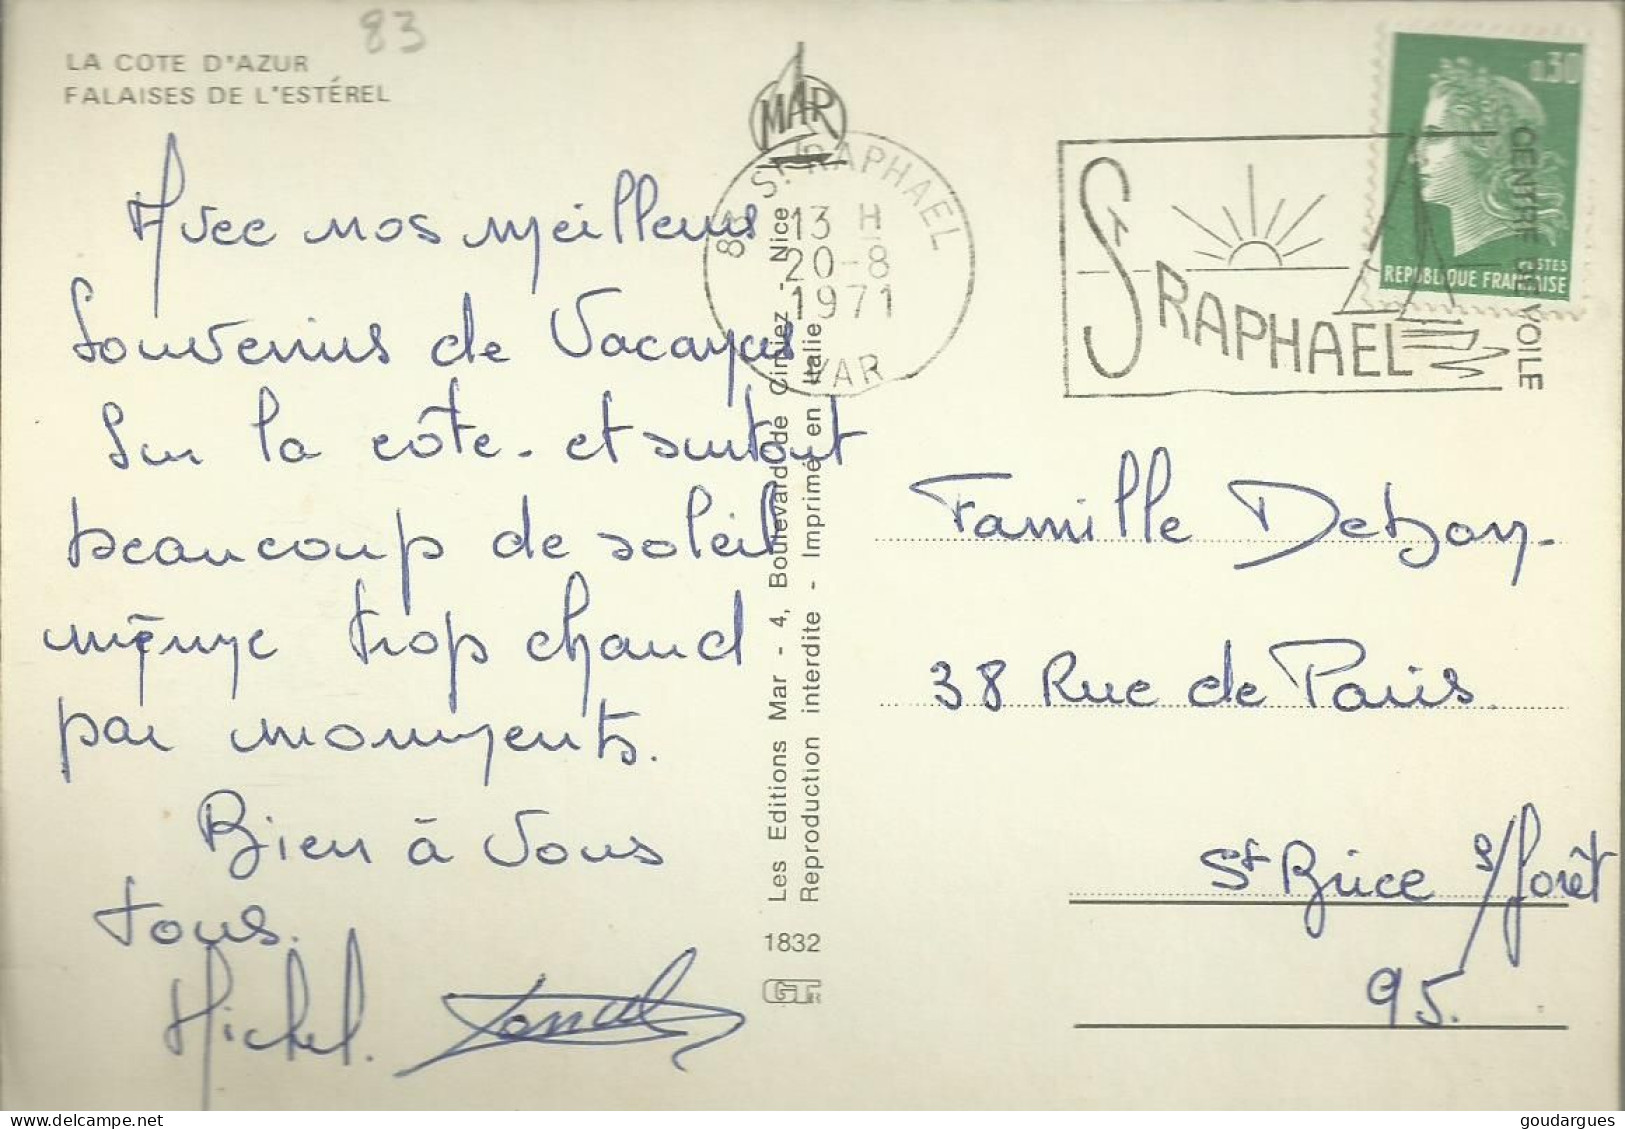 83
LA COTE D'AZUR
FALAISES DE L'ESTÉREL
Avec nos meilleurs
Souvenirs de Vacances
Sur la côte. et surtout
beaucoup de soleil
même trop chaud
par moments.
Bien à Vous
tous.
Michel.
MAR
83 ST RAPHAEL
13 H
20-8
1971
VAR
Les Editions Mar - 4, Boulevard de Cimiez - Nice
Reproduction interdite - Imprimé en Italie
1832
ST RAPHAEL
CENTRE DE VOILE
0.30
POSTES
REPUBLIQUE FRANÇAISE
Famille
38 Rue de Paris.
St Brice s/forêt
95.
goudargues.delcampe.net